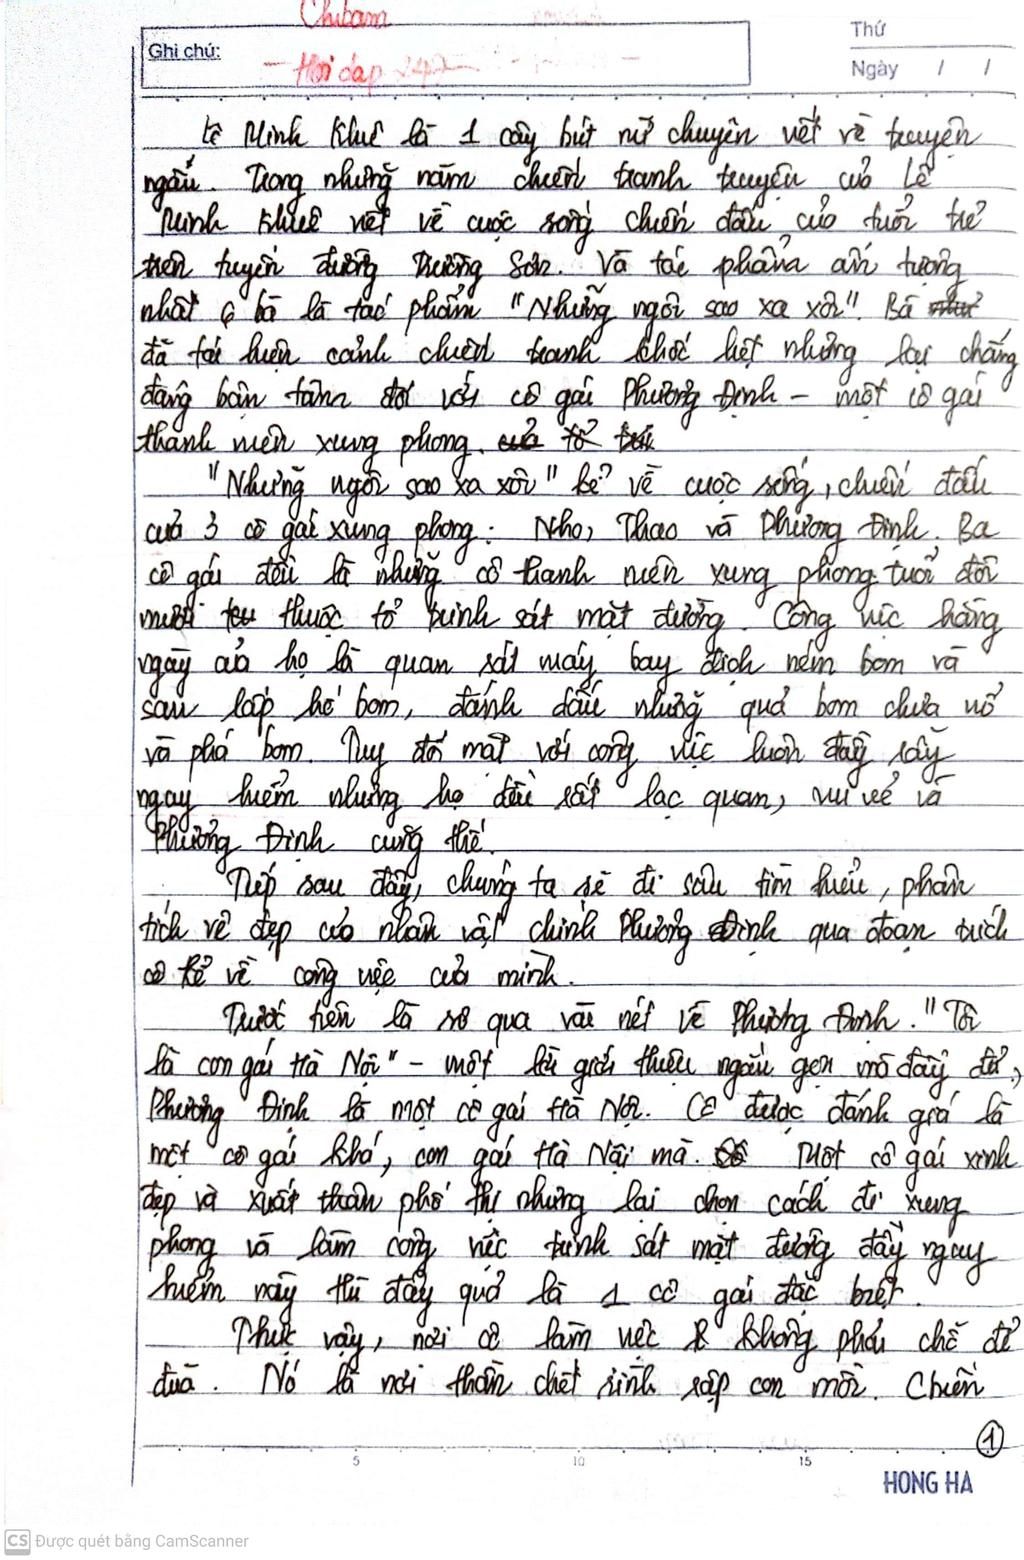 Chibam
Ghi chú:
Hỏi đáp 247
Thứ
Ngày / /
Lê Minh Khuê là 1 cây bút nữ chuyên viết về truyện
ngắn. Trong những năm chiến tranh truyện của Lê
Minh Khuê viết về cuộc sống chiến đấu của tuổi trẻ
trên tuyến đường Trường Sơn. Và tác phẩm ấn tượng
nhất bà là tác phẩm "Những ngôi sao xa xôi". Bà
đã tái hiện cảnh chiến tranh khốc liệt nhưng lại chẳng
đáng bận tâm đối với cô gái Phương Định - một cô gái
thanh niên xung phong. tổ
"Những ngôi sao xa xôi" kể về cuộc sống, chiến đấu
của 3 cô gái xung phong: Nho, Thao và Phương Định. Ba
cô gái đều là những cô thanh niên xung phong tuổi đôi
mươi thuộc tổ trinh sát mặt đường. Công việc hằng
ngày của họ là quan sát máy bay địch ném bom và
san lấp hố bom, đánh dấu những quả bom chưa nổ
và phá bom. Tuy đối mặt với công việc luôn đầy rẫy
nguy hiểm nhưng họ đều rất lạc quan, vui vẻ và
Phương Định cũng thế.
Tiếp sau đây, chúng ta sẽ đi sâu tìm hiểu, phân
tích vẻ đẹp của nhân vật chính Phương Định qua đoạn trích
cô kể về công việc của mình.
Trước tiên là sơ qua vài nét về Phương Định. "Tôi
là con gái Hà Nội" - một lời giới thiệu ngắn gọn mà đầy đủ,
Phương Định là một cô gái Hà Nội. Cô được đánh giá là
một cô gái khá, con gái Hà Nội mà. Một cô gái xinh
đẹp và xuất thân phố thị nhưng lại chọn cách đi xung
phong và làm công việc trinh sát mặt đường đầy nguy
hiểm này thì đây quả là 1 cô gái đặc biệt.
Thực vậy, nơi cô làm việc không phải chỗ để
đùa. Nó là nơi thần chết rình rập con mồi. Chiến
1
5 10 15
HONG HA
CS Được quét bằng CamScanner